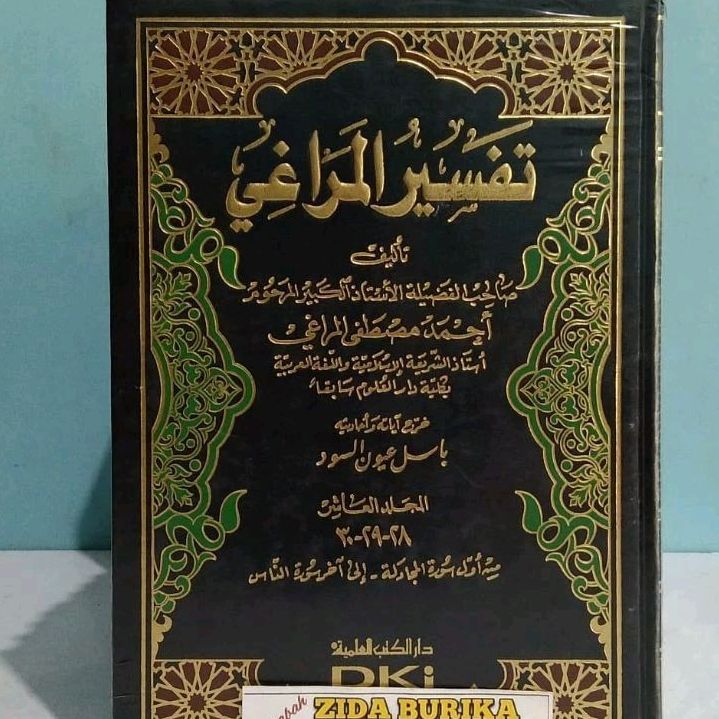 تفسير المراغي
تأليف
صاحب الفضيلة الأستاذ الكبير المرحوم
أحمد مصطفى المراغي
أستاذ الشريعة الإسلامية واللغة العربية
بكلية دار العلوم سابقاً
خرج آياته وأحاديثه
باسل عيون السود
المجلد العاشر
٢٨-٢٩-٣٠
من أول سورة المجادلة - إلى آخر سورة الناس
دار الكتب العلمية
DKi
ZIDA BURIKA